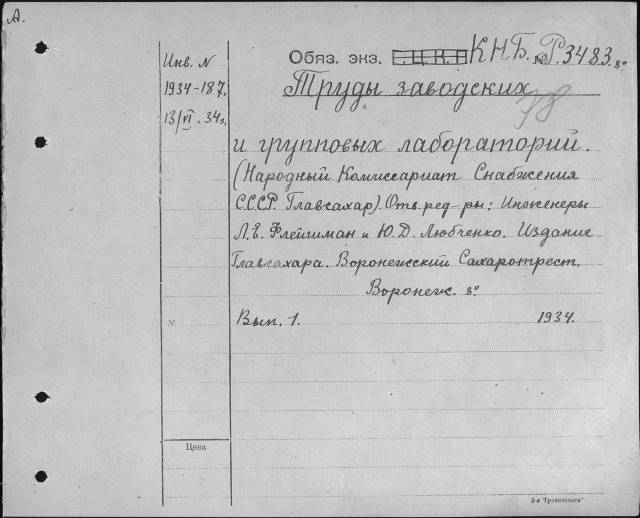 А.
Инв. N
1934-187.
13/VI.34г.
Обяз. экз. Ц.К.П К.Н.Б. № Р.3483.8°
Труды заводских
78
и групповых лабораторий.
(Народный Комиссариат Снабжения
СССР. Главсахар). Отв. ред-ры: Инженеры
Л.Е. Флейшман и Ю.Д. Любченко. Издание
Главсахара. Воронежский Сахаротрест.
Воронеж. 8°.
№ Вып. 1. 1934.
Цена